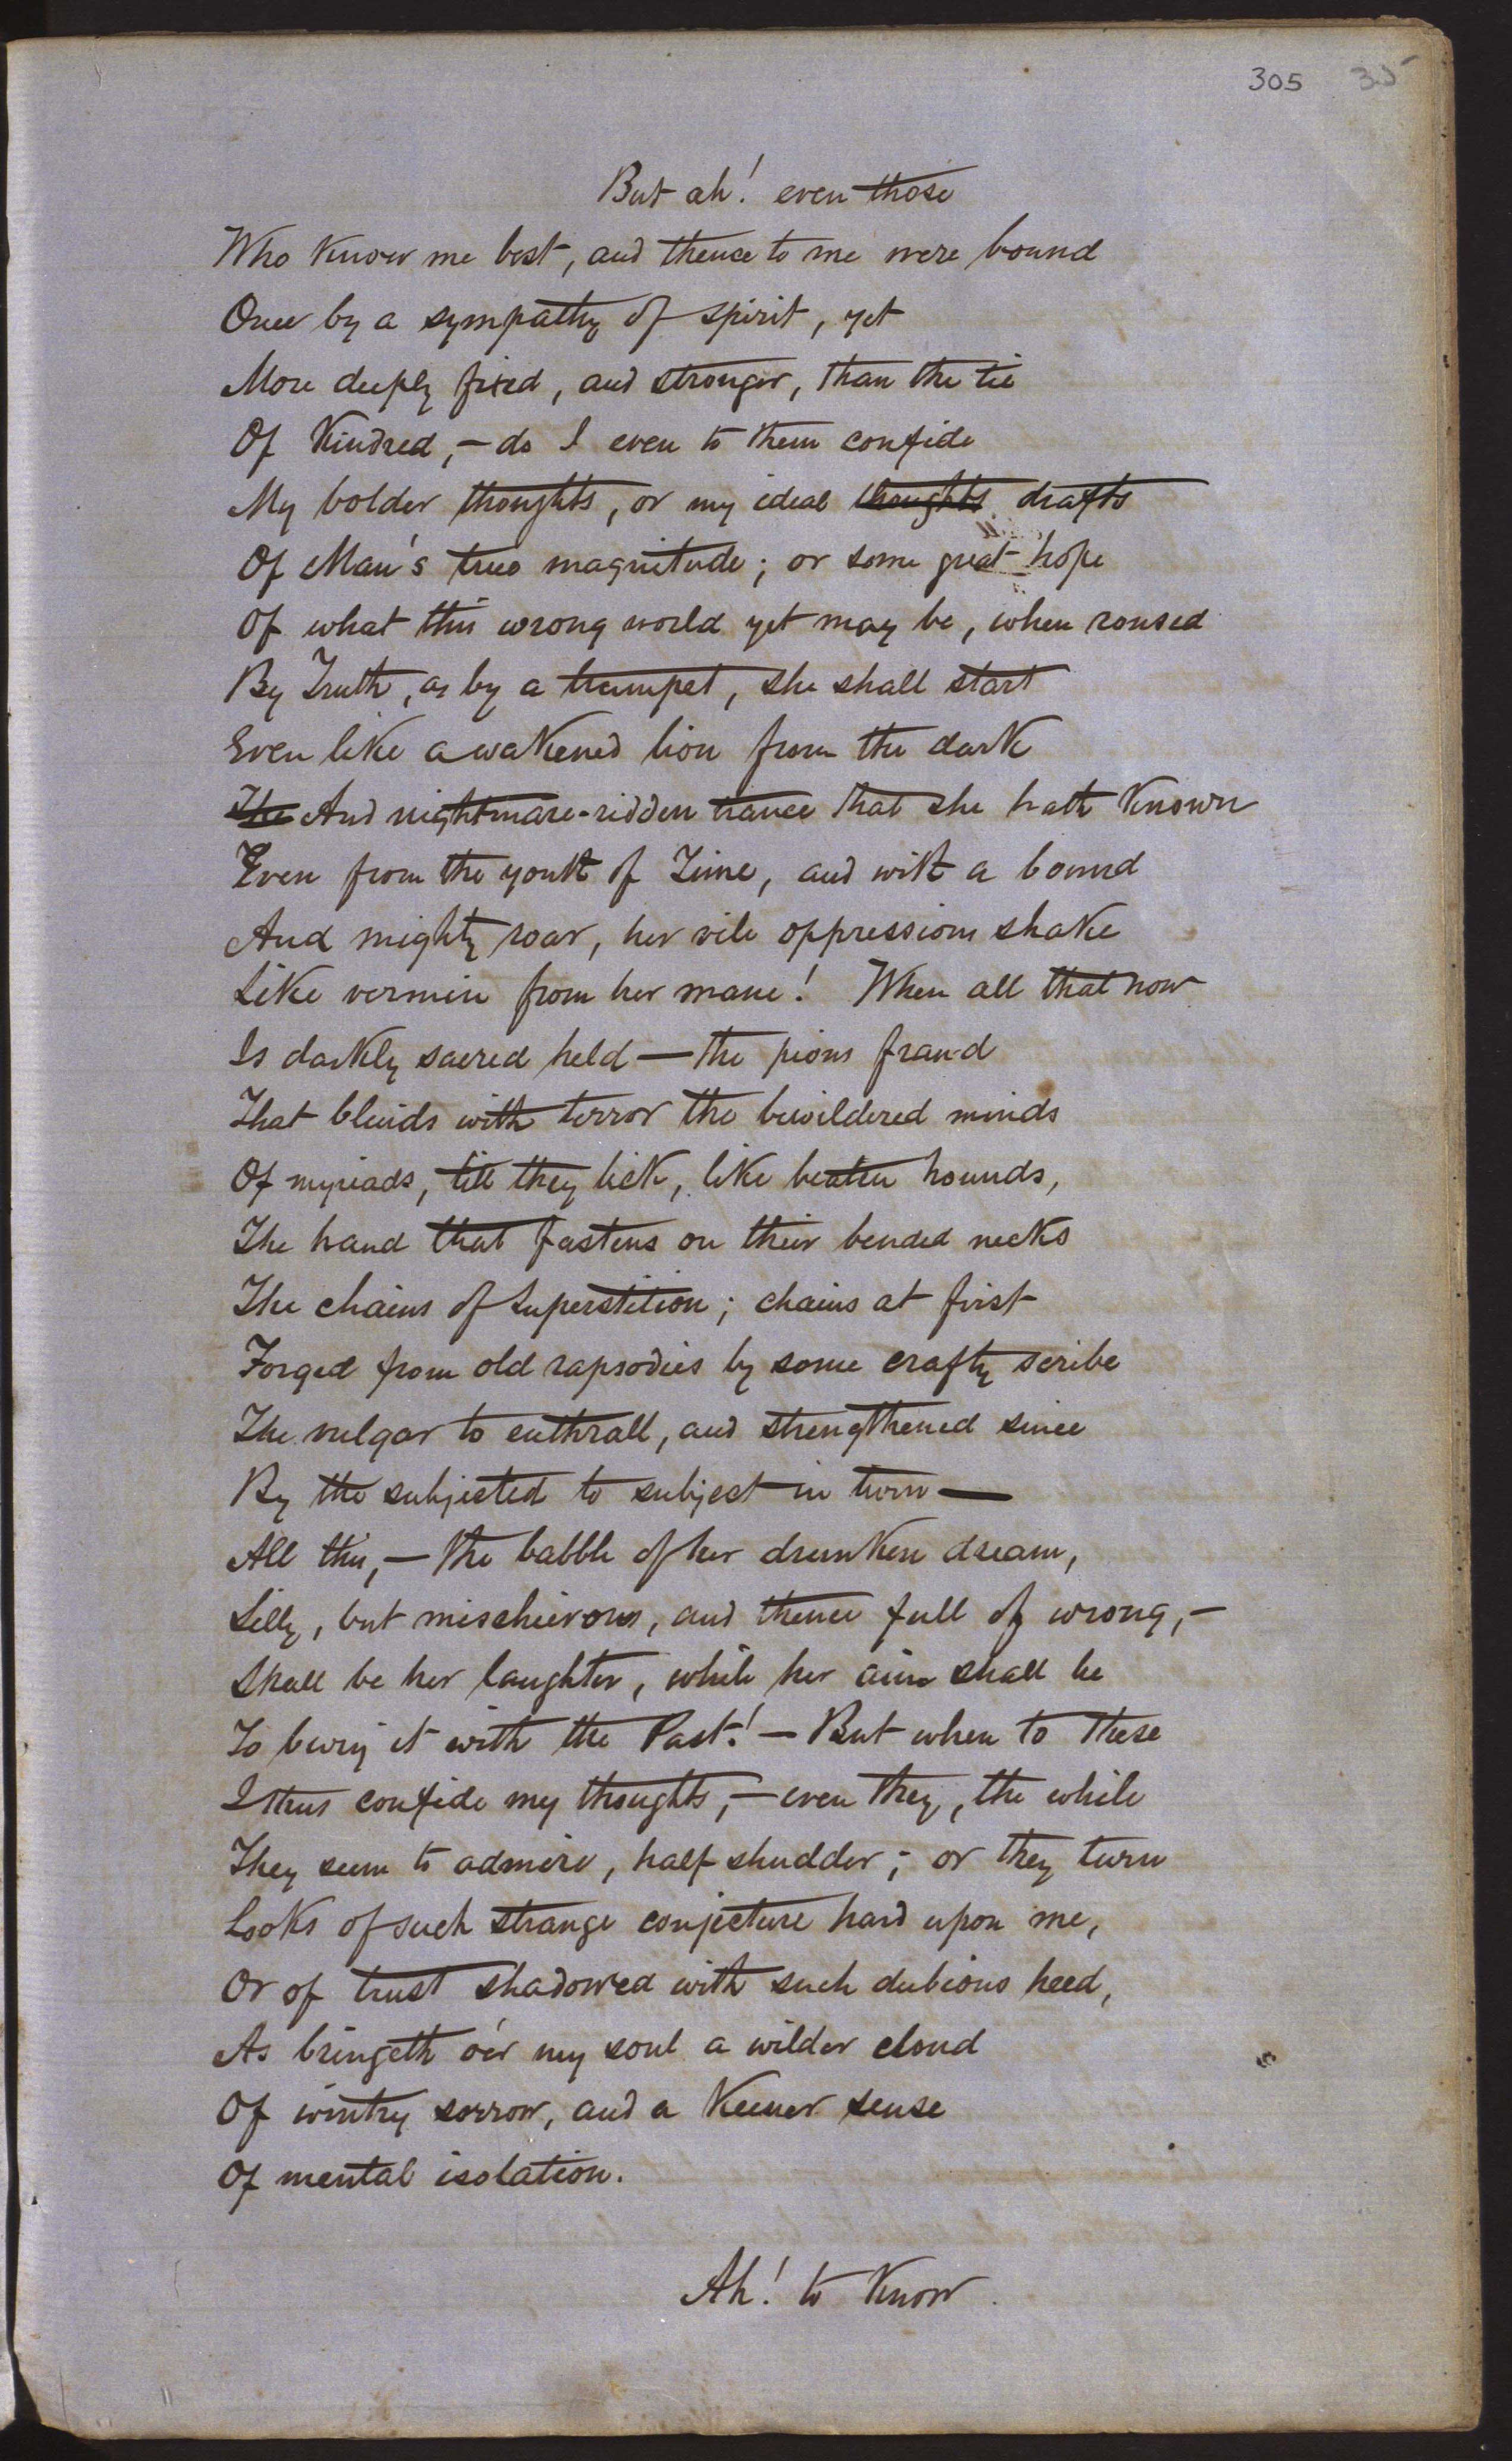 305 35
But ah! even those
Who know me best, and thence to me were bound
Once by a sympathy of spirit, yet
More deeply fixed, and stronger, than the tie
Of kindred,— do I even to them confide
My bolder thoughts, or my ideal thoughts drafts
Of Man's true magnitude; or some great hope
Of what this wrong world yet may be, when roused
By Truth, as by a trumpet, she shall start
Even like awakened lion from the dark
The And nightmare-ridden trance that she hath known
Even from the youth of Time, and with a bound
And mighty roar, her vile oppressions shake
Like vermin from her mane! When all that now
Is darkly sacred held — the pious fraud
That blinds with terror the bewildered minds
Of myriads, till they lick, like beaten hounds,
The hand that fastens on their bended necks
The chains of Superstition; chains at first
Forged from old rapsodies by some crafty scribe
The vulgar to enthrall, and strengthened since
By the subjected to subject in turn —
All this,— the babble of her drunken dream,
Silly, but mischievous, and thence full of wrong,—
Shall be her laughter, while her aim shall be
To bury it with the Past!— But when to these
I thus confide my thoughts,— even they, the while
They seem to admire, half shudder; or they turn
Looks of such strange conjecture hard upon me,
Or of trust shadowed with such dubious heed,
As bringeth o'er my soul a wilder cloud
Of wintry sorrow, and a keener sense
Of mental isolation.
Ah! to know